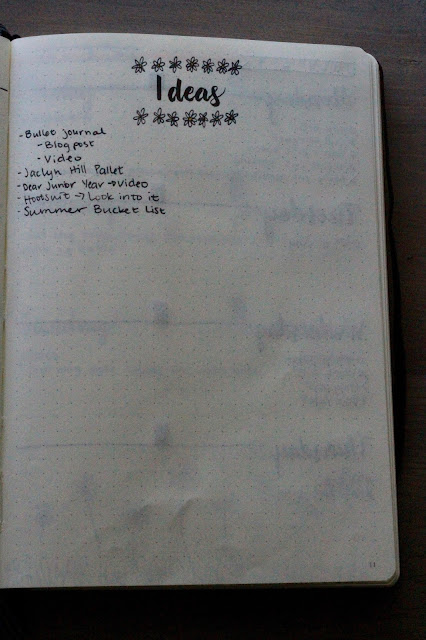 Ideas
- Bullet journal
- Blog post
- Video
- Jaclyn Hill Pallet
- Dear Junior Year → Video
- Hootsuit → Look into it
- Summer Bucket List
Tuesday
Wednesday
Thursday
11